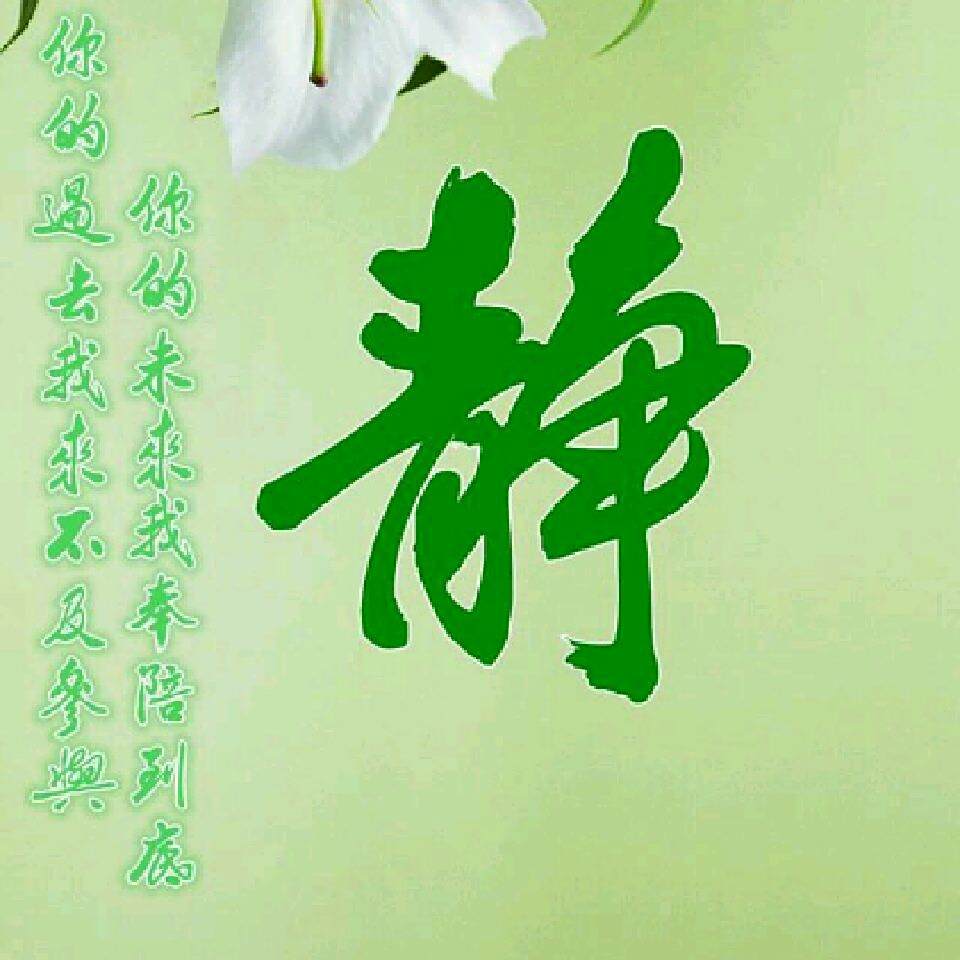 你的過去我來不及參與
你的未來我奉陪到底
静